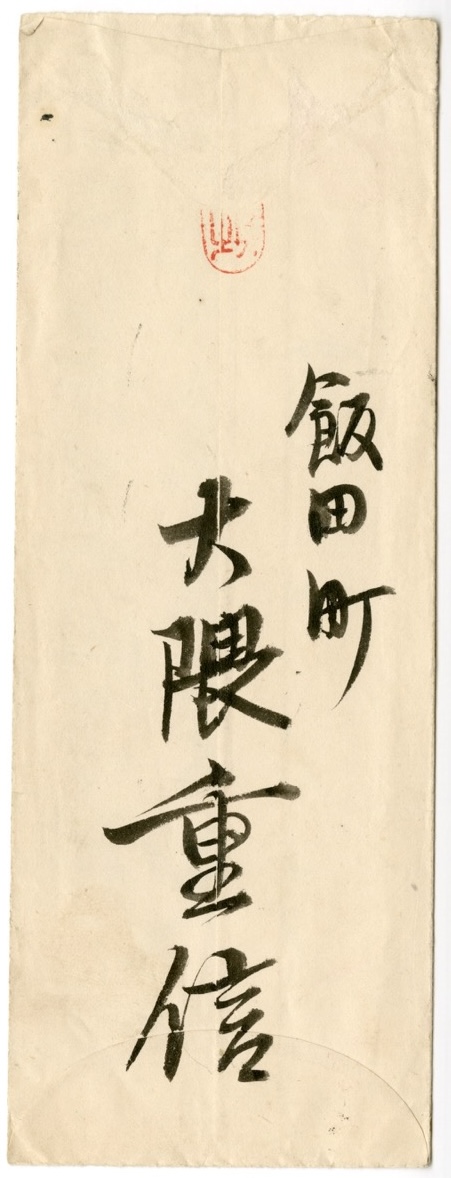 飯田町
大隈重信